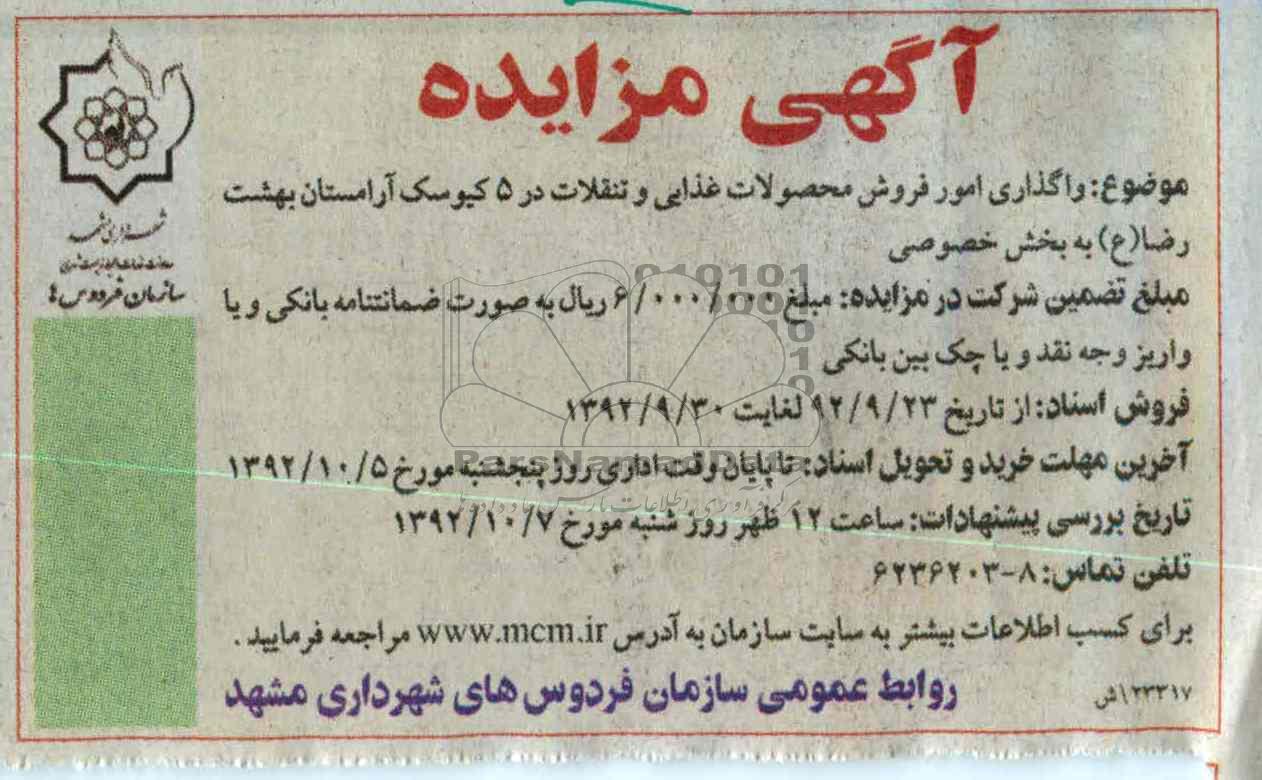 آگهی مزایده
شهرداری مشهد
سازمان فردوس ها
موضوع: واگذاری امور فروش محصولات غذایی و تنقلات در ۵ کیوسک آرامستان بهشت
رضا(ع) به بخش خصوصی
مبلغ تضمین شرکت در مزایده: مبلغ ۶/۰۰۰/۰۰۰ ریال به صورت ضمانتنامه بانکی و یا
واریز وجه نقد و یا چک بین بانکی
فروش اسناد: از تاریخ ۹۲/۹/۲۳ لغایت ۱۳۹۲/۹/۳۰
آخرین مهلت خرید و تحویل اسناد: تا پایان وقت اداری روز پنجشنبه مورخ ۱۳۹۲/۱۰/۵
تاریخ بررسی پیشنهادات: ساعت ۱۲ ظهر روز شنبه مورخ ۱۳۹۲/۱۰/۷
تلفن تماس: ۸-۶۲۳۶۲۰۳
برای کسب اطلاعات بیشتر به سایت سازمان به آدرس www.mcm.ir مراجعه فرمایید .
روابط عمومی سازمان فردوس های شهرداری مشهد
ParsNamadData